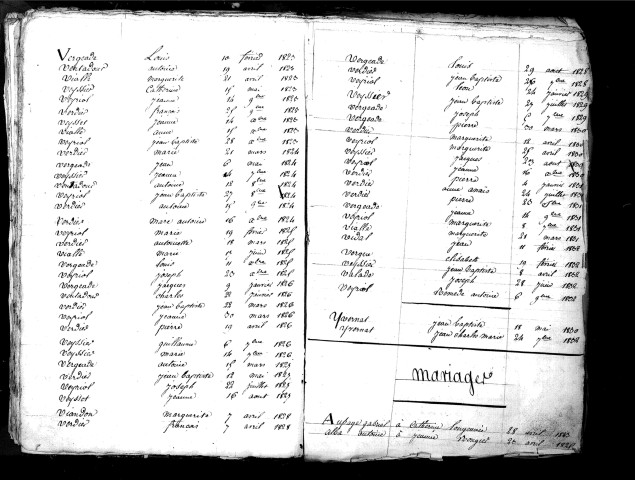 Vergeade Louis 10 fevrier 1823
Ventadour antoine 19 avril 1823
Vialle marguerite 21 avril 1823
Veyssier Catherine 15 mai 1823
Veyriol jeanne 14 9bre 1823
Verdier francois 25 9bre 1823
Veysset jeanne 14 Xbre 1823
Vialle anne 15 Xbre 1823
Veyriol jean baptiste 28 Xbre 1823
Verdier marie 21 mars 1824
Vergeade jean 6 mai 1824
Veyssier jeanne 14 7bre 1824
Ventadour antoine 18 8bre 1824
Veyriol jean baptiste 27 8bre 1824
Verdier antoine 15 9bre 1824
Verdier marc antoine 16 Xbre 1824
Veyriol marie 19 fevrier 1825
Verdier antoinette 18 mars 1825
Vialle marie 1825
Vergeade Louis 11 Xbre 1825
Veyriol joseph 23 Xbre 1825
Vergeade jacques 9 janvier 1826
Ventadour charles 21 janvier 1826
Verdier jean baptiste 28 mars 1826
Veyriol jeanne 30 mars 1826
Verdier pierre 19 avril 1826
Veyssier guillaume 6 7bre 1826
Veyssier marie 14 7bre 1826
Vergeade antoine 15 mars 1827
Verdier jean baptiste 12 mai 1827
Veyriol joseph 22 juillet 1827
Veysset jeanne 16 aout 1827
Viandon marguerite 7 avril 1828
Verdier francois 7 avril 1828
Vergeade Louis 29 aout 1828
Verdier jean baptiste 26 7bre 1828
Veyriol 24 janvier 1829
Veyssier jean baptiste 29 juillet 1829
Vergeade joseph 6 7bre 1829
Vergeade pierre 30 mars 1830
Verdier marguerite 18 avril 1830
Veyriol marguerite 25 avril 1830
Veyssier jacques 23 aout 1830
Veyriol jeanne 16 Xbre 1830
Verdier pierre 4 janvier 1831
Verdier anne anais 24 juillet 1831
Verdier pierre 23 1831
Vergeade jeanne 16 9bre 1831
Veyriol marguerite 8 1831
Vialle marguerite 21 mars 1831
Vidal jean 11 fevrier 1832
Vergne elisabeth 19 fevrier 1832
Veyssier jean baptiste 8 avril 1832
Valade joseph 28 juin 1832
Veyriol antoine 6 9bre 1832
Yvernat jean baptiste 18 mai 1830
Yvernat jean charles marie 24 7bre 1832
mariages
Aupaye gabriel à Catherine 28 avril 1823
antoine à jeanne 20 avril